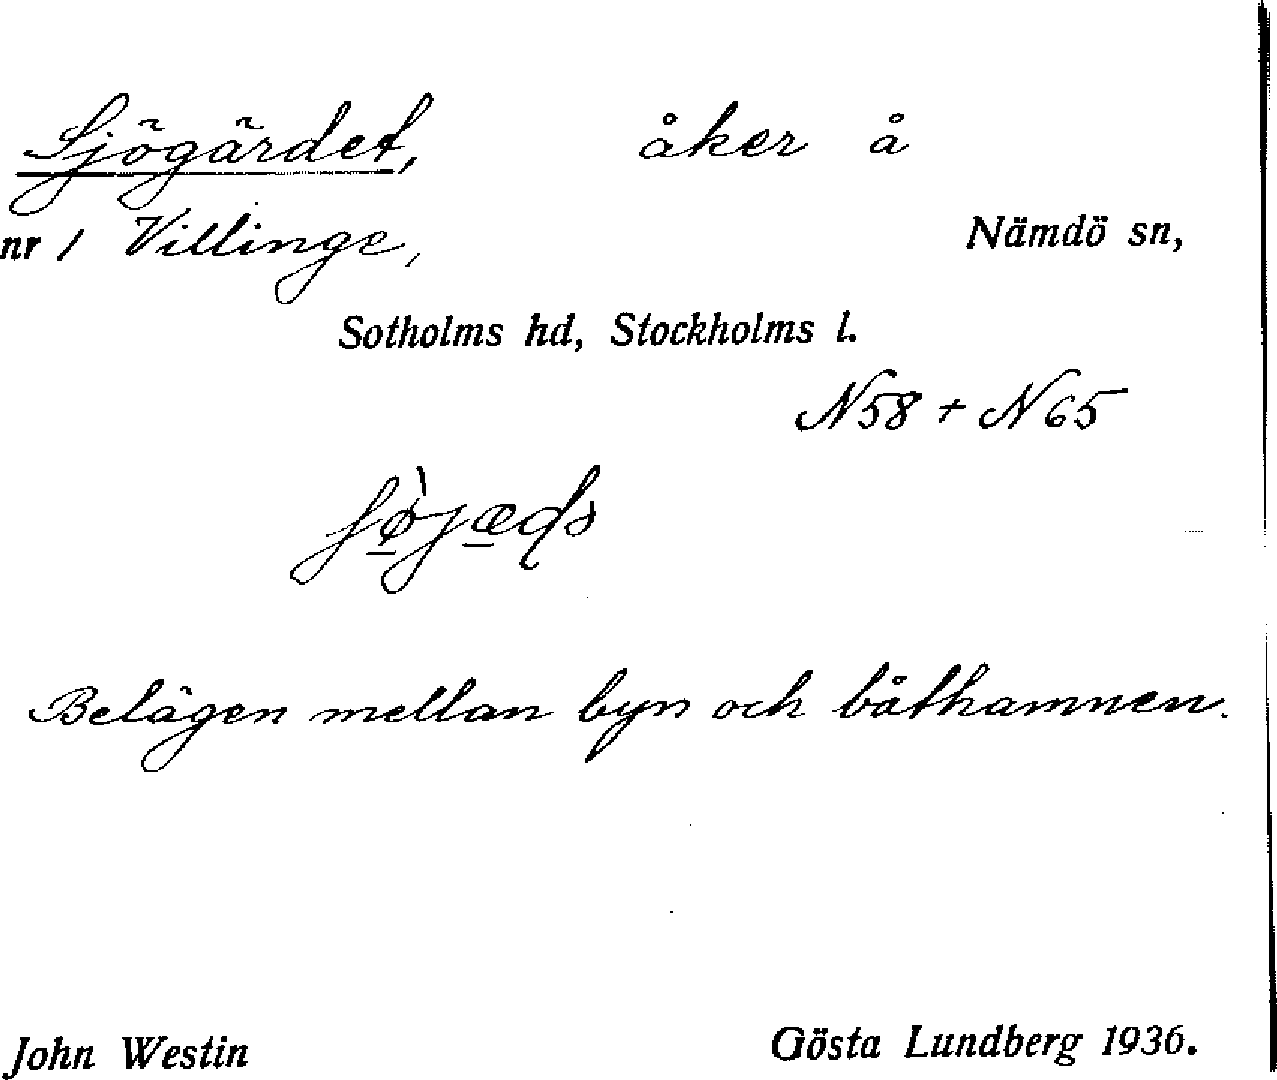 Sjögärdet, åker å
nr 1 Villinge, Nämdö sn,
Sotholms hd, Stockholms l.
N58 + N65
Belägen mellan byn och båthamnen.
John Westin Gösta Lundberg 1936.